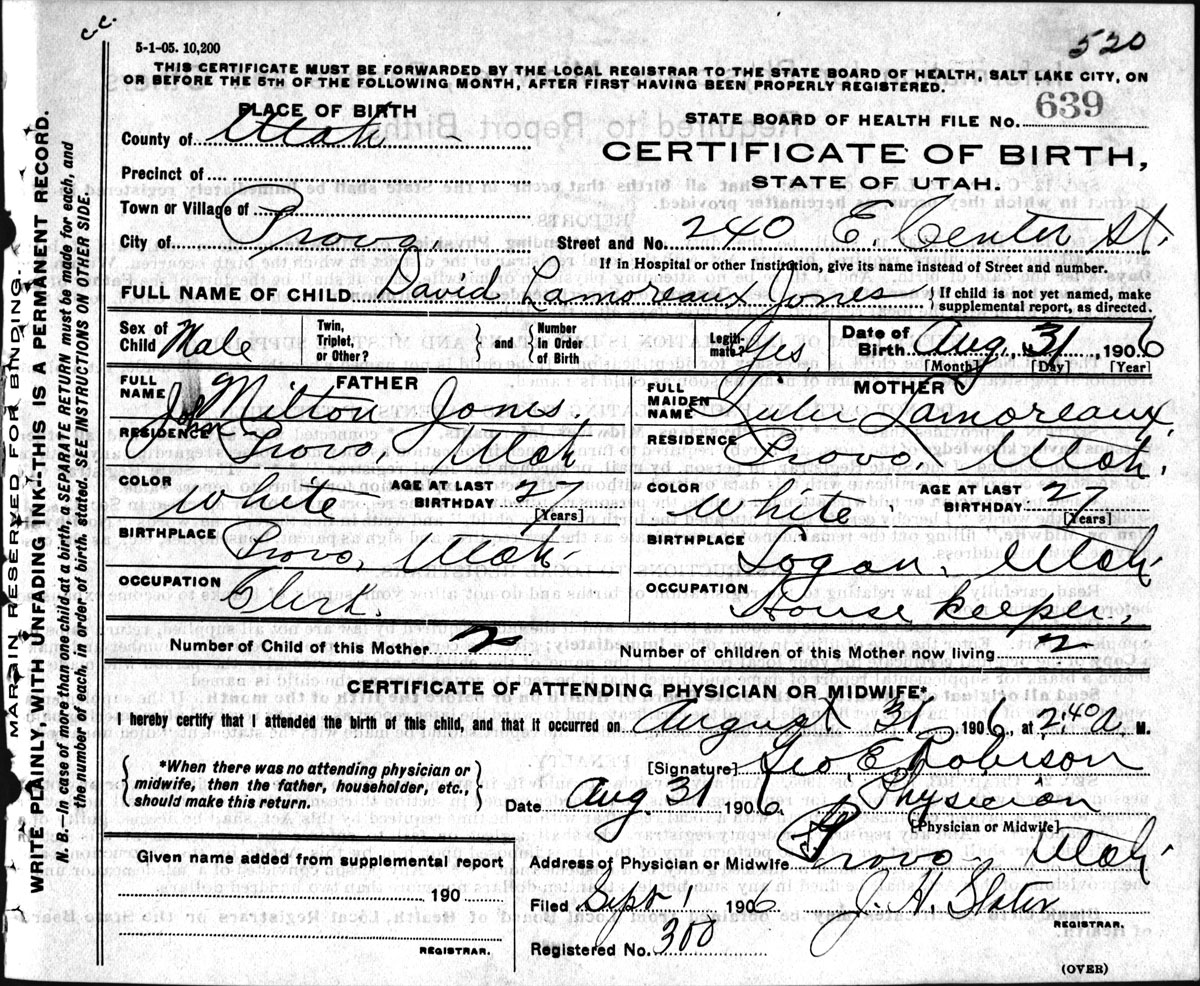 c.c.
520
5-1-05. 10,200
THIS CERTIFICATE MUST BE FORWARDED BY THE LOCAL REGISTRAR TO THE STATE BOARD OF HEALTH, SALT LAKE CITY, ON
OR BEFORE THE 5TH OF THE FOLLOWING MONTH, AFTER FIRST HAVING BEEN PROPERLY REGISTERED.
PLACE OF BIRTH
STATE BOARD OF HEALTH FILE NO. 639
County of Utah
CERTIFICATE OF BIRTH,
Precinct of
STATE OF UTAH.
Town or Village of
City of Provo, Street and No. 240 E. Center St.
If in Hospital or other Institution, give its name instead of Street and number.
FULL NAME OF CHILD David Lamoreaux Jones } If child is not yet named, make supplemental report, as directed.
Sex of Child Male Twin, Triplet, or Other? } and { Number in Order of Birth Legiti-mate? Yes Date of Birth Aug. 31, 1906
[Month] [Day] [Year]
FATHER
FULL NAME John Milton Jones.
RESIDENCE Provo, Utah
COLOR White AGE AT LAST BIRTHDAY 27
[Years]
BIRTHPLACE Provo, Utah.
OCCUPATION Clerk.
MOTHER
FULL MAIDEN NAME Lulu Lamoreaux,
RESIDENCE Provo, Utah.
COLOR White. AGE AT LAST BIRTHDAY 27
[Years]
BIRTHPLACE Logan, Utah.
OCCUPATION House keeper,
Number of Child of this Mother 2 Number of children of this Mother now living 2
CERTIFICATE OF ATTENDING PHYSICIAN OR MIDWIFE*.
I hereby certify that I attended the birth of this child, and that it occurred on August 31 1906, at 2:40 a. M.
{ *When there was no attending physician or midwife, then the father, householder, etc., should make this return. }
[Signature] Geo. E. Robison
Date Aug 31 1906 Physician
[Physician or Midwife]
Given name added from supplemental report
190
REGISTRAR.
Address of Physician or Midwife Provo, Utah.
Filed Sept 1 1906 J. H. Slater
REGISTRAR.
Registered No. 300
(OVER)
MARGIN RESERVED FOR BINDING.
WRITE PLAINLY, WITH UNFADING INK--THIS IS A PERMANENT RECORD.
N. B.—In case of more than one child at a birth, a SEPARATE RETURN must be made for each, and
the number of each, in order of birth, stated. SEE INSTRUCTIONS ON OTHER SIDE.